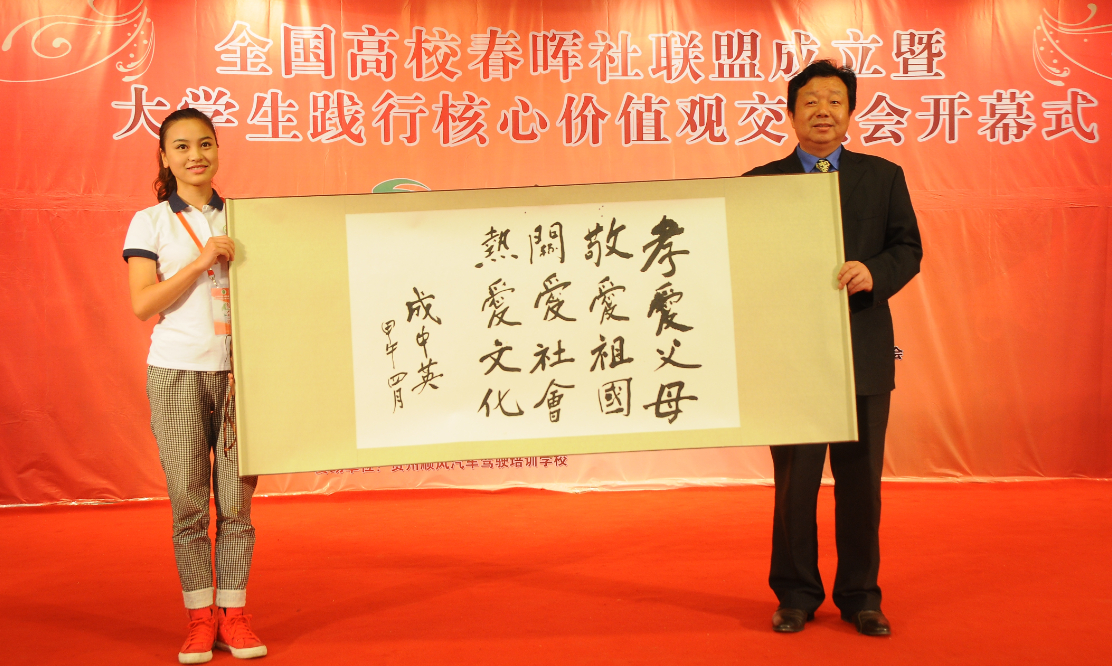 全国高校春晖社联盟成立暨
大学生践行核心价值观交会开幕式
孝愛父母
敬愛祖國
關愛社會
熱愛文化
成中英
甲午四月
单位：贵州顺风汽车驾驶培训学校
会